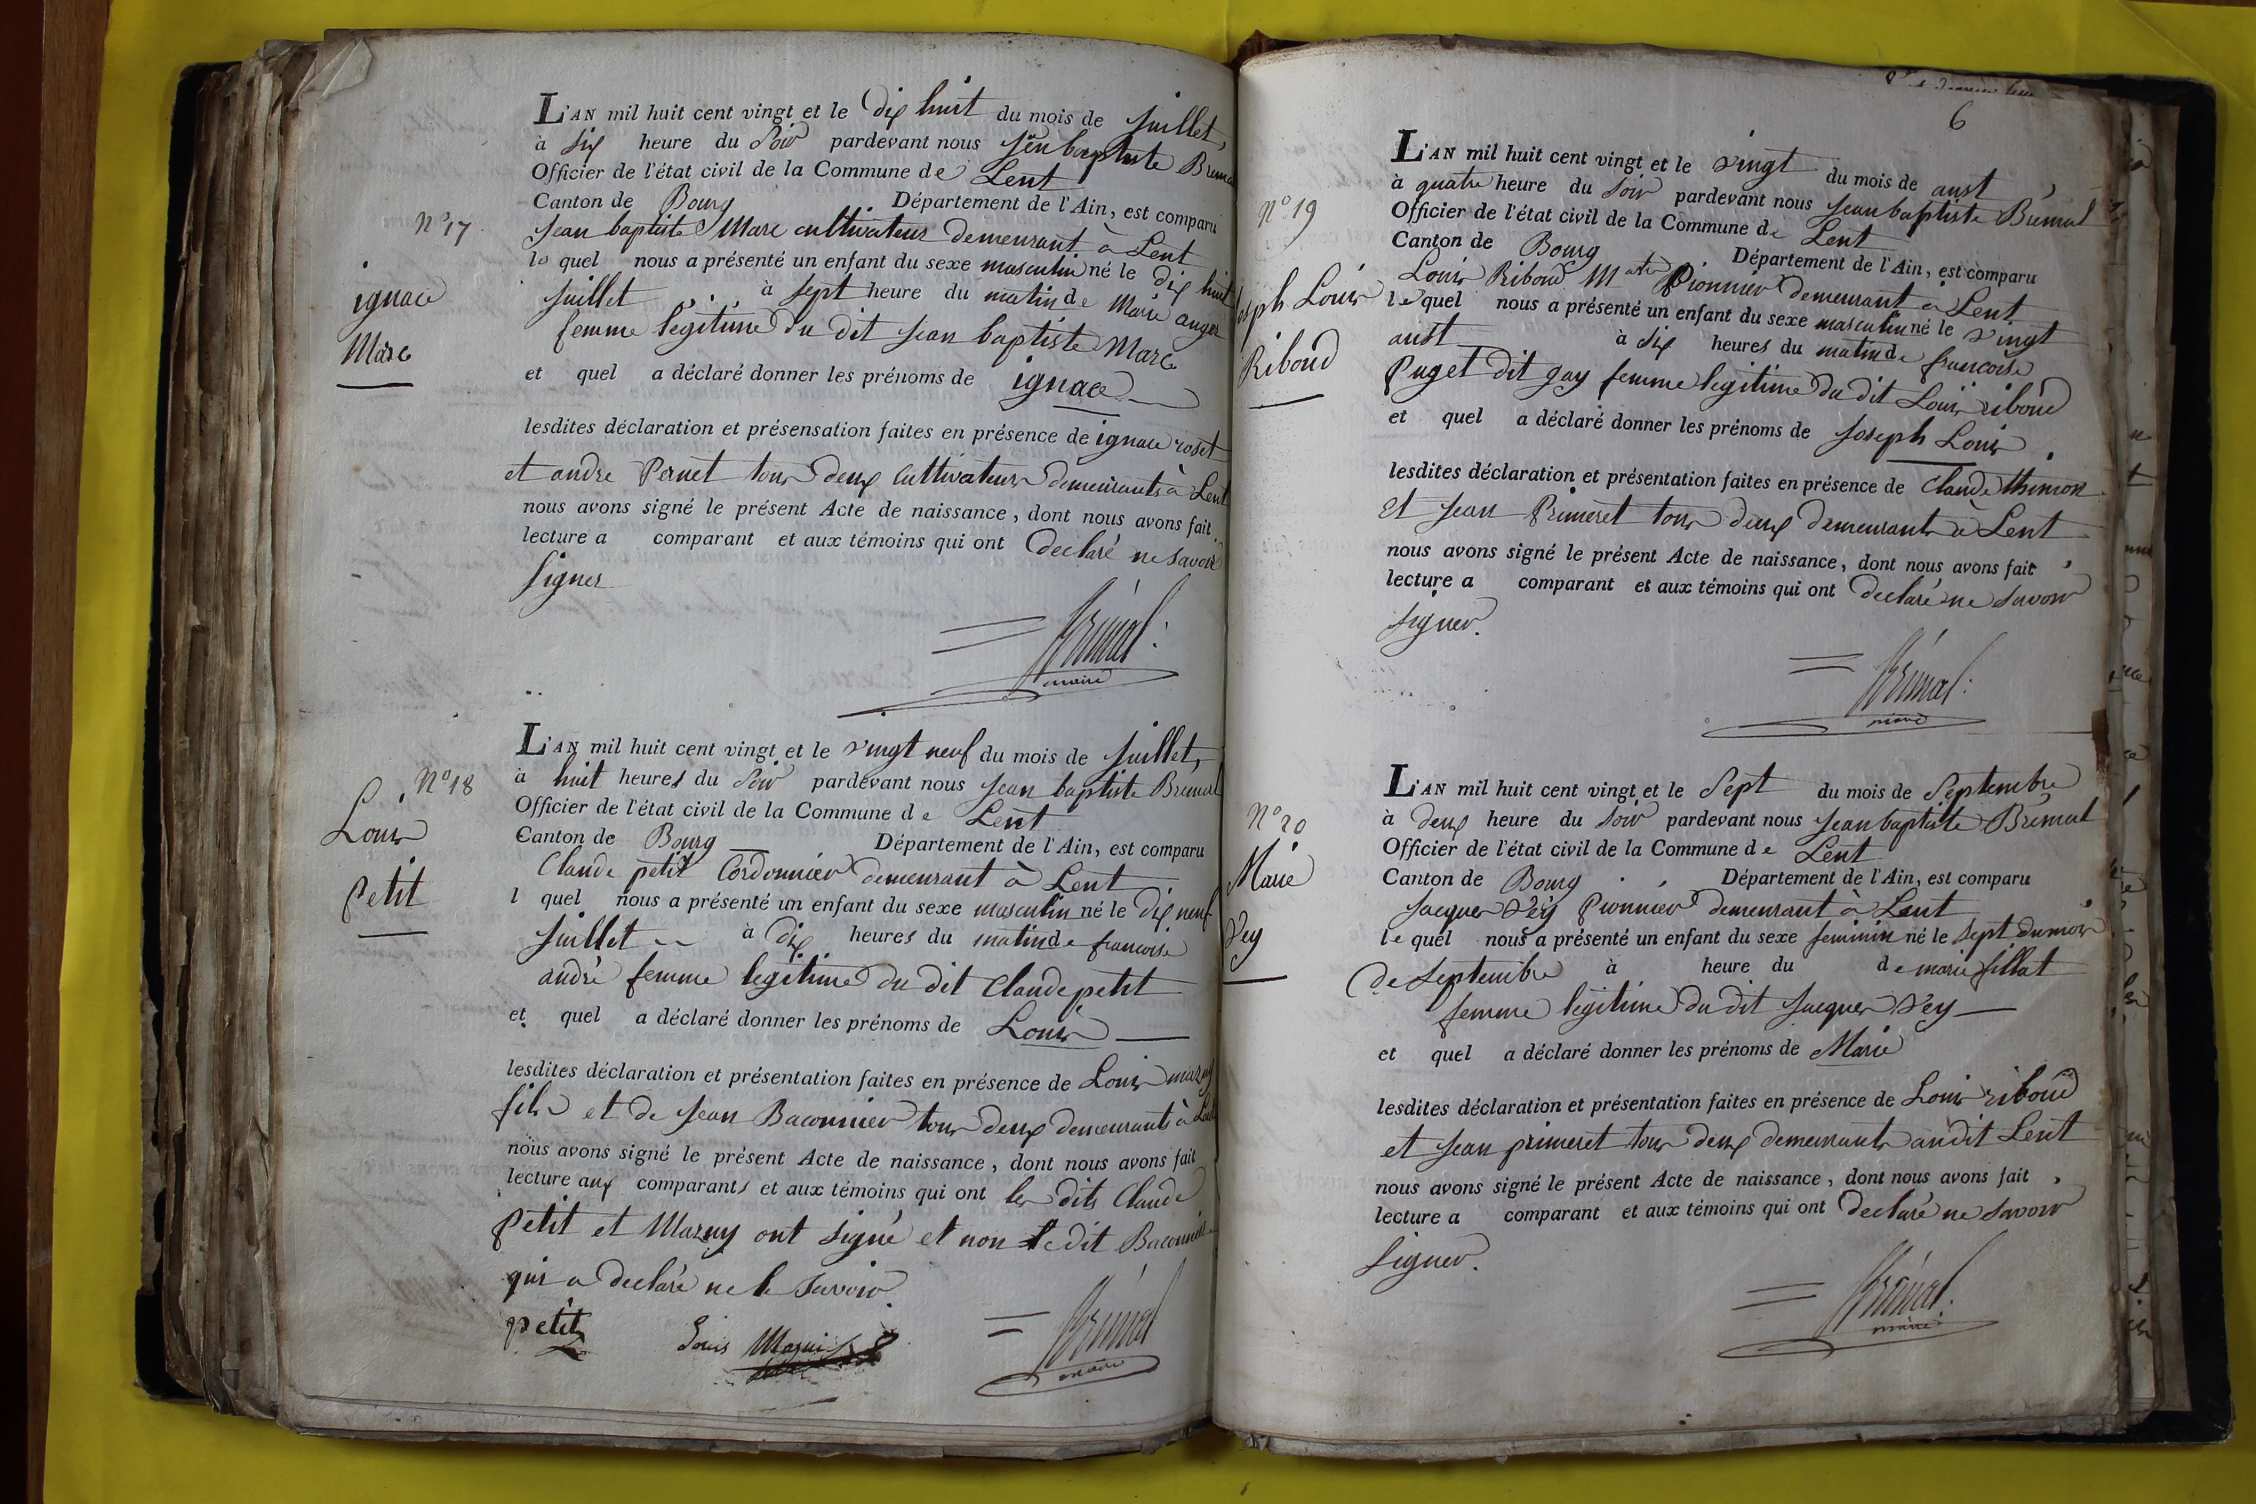 L'AN mil huit cent vingt et le dix huit du mois de juillet,
à six heure du soir pardevant nous jean baptiste
Officier de l'état civil de la Commune de Lent
Canton de Bourg Département de l'Ain, est comparu
N° 17
jean baptiste Marc cultivateur demeurant à Lent
le quel nous a présenté un enfant du sexe masculin né le dix huit
juillet à sept heure du matin de Marie
femme légitime du dit jean baptiste Marc
ignace
Marc
et quel a déclaré donner les prénoms de ignace
lesdites déclaration et présensation faites en présence de ignace roset
et andré Pernet tous deux cultivateurs demeurants à Lent
nous avons signé le présent Acte de naissance, dont nous avons fait
lecture a comparant et aux témoins qui ont declaré ne savoir
signer
Brémal
maire
L'AN mil huit cent vingt et le vingt neuf du mois de juillet,
à huit heures du soir pardevant nous jean baptiste Brémal
Officier de l'état civil de la Commune de Lent
Canton de Bourg Département de l'Ain, est comparu
N° 18
Louis
Petit
Claude petit Cordonnier demeurant à Lent
l quel nous a présenté un enfant du sexe masculin né le dix neuf
juillet à dix heures du matin de francoise
andré femme legitime du dit Claude petit
et quel a déclaré donner les prénoms de Louis
lesdites déclaration et présentation faites en présence de Louis mazuy
fils et de jean Baconnier tous deux demeurants à Lent
nous avons signé le présent Acte de naissance, dont nous avons fait
lecture aux comparants et aux témoins qui ont les dits Claude
petit et Mazuy ont signé et non le dit Baconnier
qui a declaré ne le savoir
petit Louis Mazui Brémal
maire
6
L'AN mil huit cent vingt et le vingt du mois de aust
à quatre heure du soir pardevant nous jean baptiste Brémal
Officier de l'état civil de la Commune de Lent
Canton de Bourg Département de l'Ain, est comparu
N° 19
joseph Louis
Riboud
Louis Riboud Pionnier demeurant à Lent
le quel nous a présenté un enfant du sexe masculin né le vingt
aust à six heures du matin de francoise
Puget dit gay femme legitime du dit Louis riboud
et quel a déclaré donner les prénoms de joseph Louis
lesdites déclaration et présentation faites en présence de Claude
et jean Primeret tous deux demeurant à Lent
nous avons signé le présent Acte de naissance, dont nous avons fait
lecture a comparant et aux témoins qui ont declaré ne savoir
signer.
Brémal
maire
L'AN mil huit cent vingt et le sept du mois de septembre
à deux heure du soir pardevant nous jean baptiste Brémal
Officier de l'état civil de la Commune de Lent
Canton de Bourg Département de l'Ain, est comparu
N° 20
Marie
Vey
jacques Vey pionnier demeurant à Lent
le quel nous a présenté un enfant du sexe feminin né le sept du mois
de septembre à heure du de marie fillat
femme legitime du dit jacques Vey
et quel a déclaré donner les prénoms de Marie
lesdites déclaration et présentation faites en présence de Louis riboud
et jean primeret tous deux demeurants audit Lent
nous avons signé le présent Acte de naissance, dont nous avons fait
lecture a comparant et aux témoins qui ont declaré ne savoir
signer.
Brémal
maire